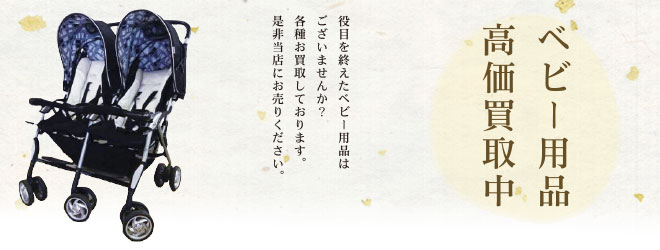 ベビー用品
高価買取中
役目を終えたベビー用品は
ございませんか？
各種お買取しております。
是非当店にお売りください。